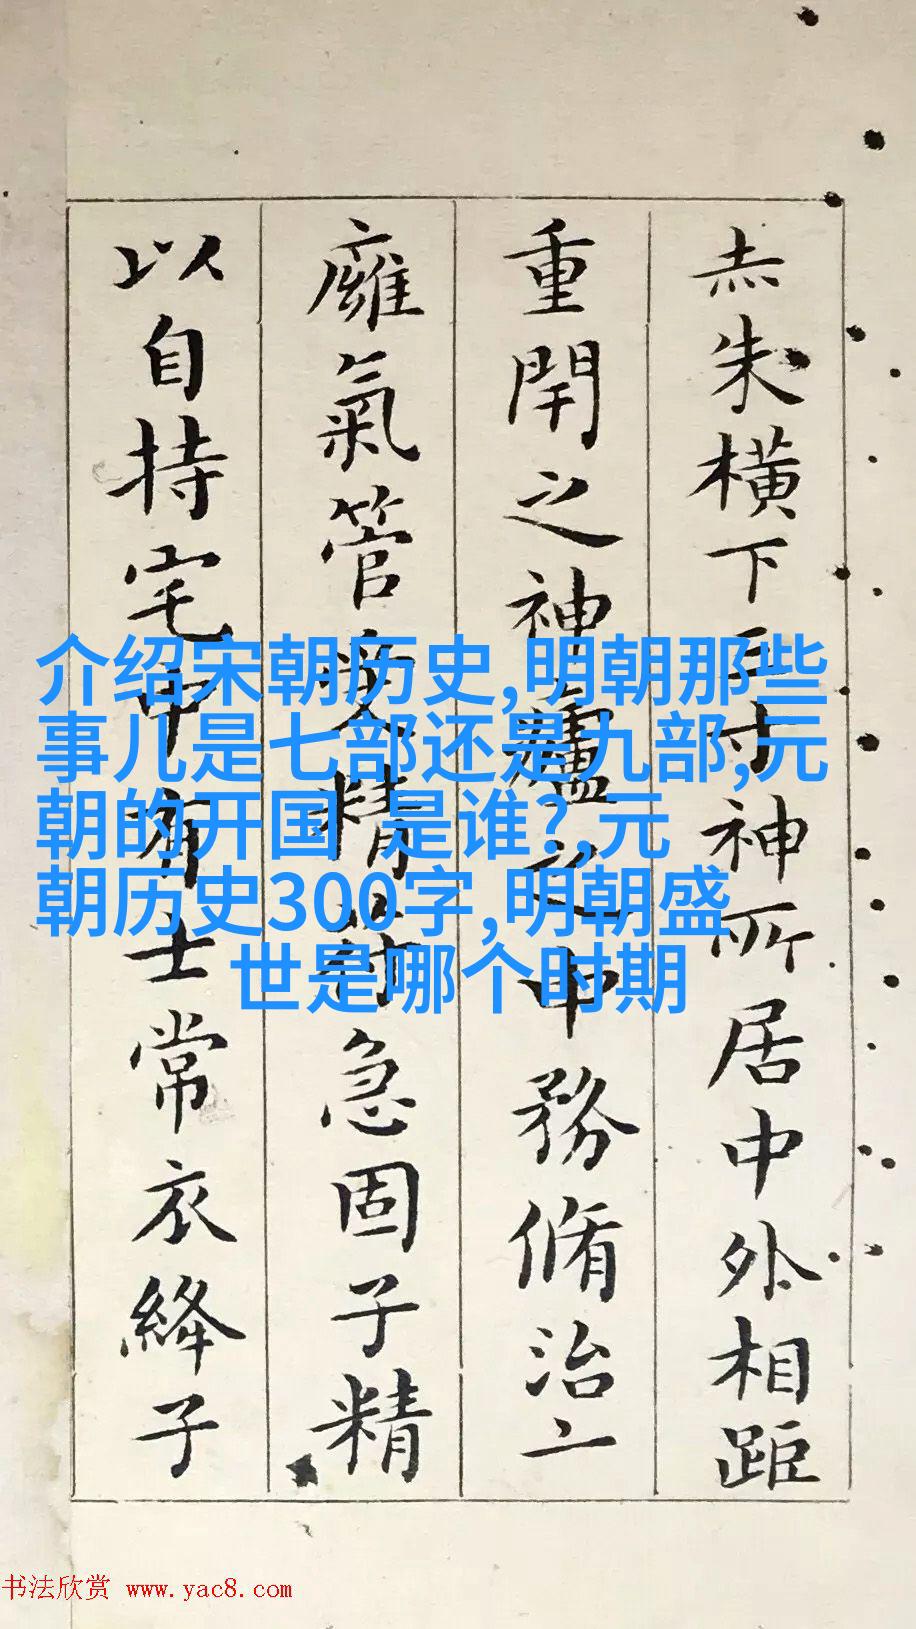 赤朱橫下三寸神所居中外相距
重閇之神廬之中務脩治二
廱氣管受精符急固子精
以自持宅中有士常衣絳子
介绍宋朝历史,明朝那些
事儿是七部还是九部,元
朝的开国 是谁?,元
朝历史300字,明朝盛
世是哪个时期
书法欣赏 www.yac8.com